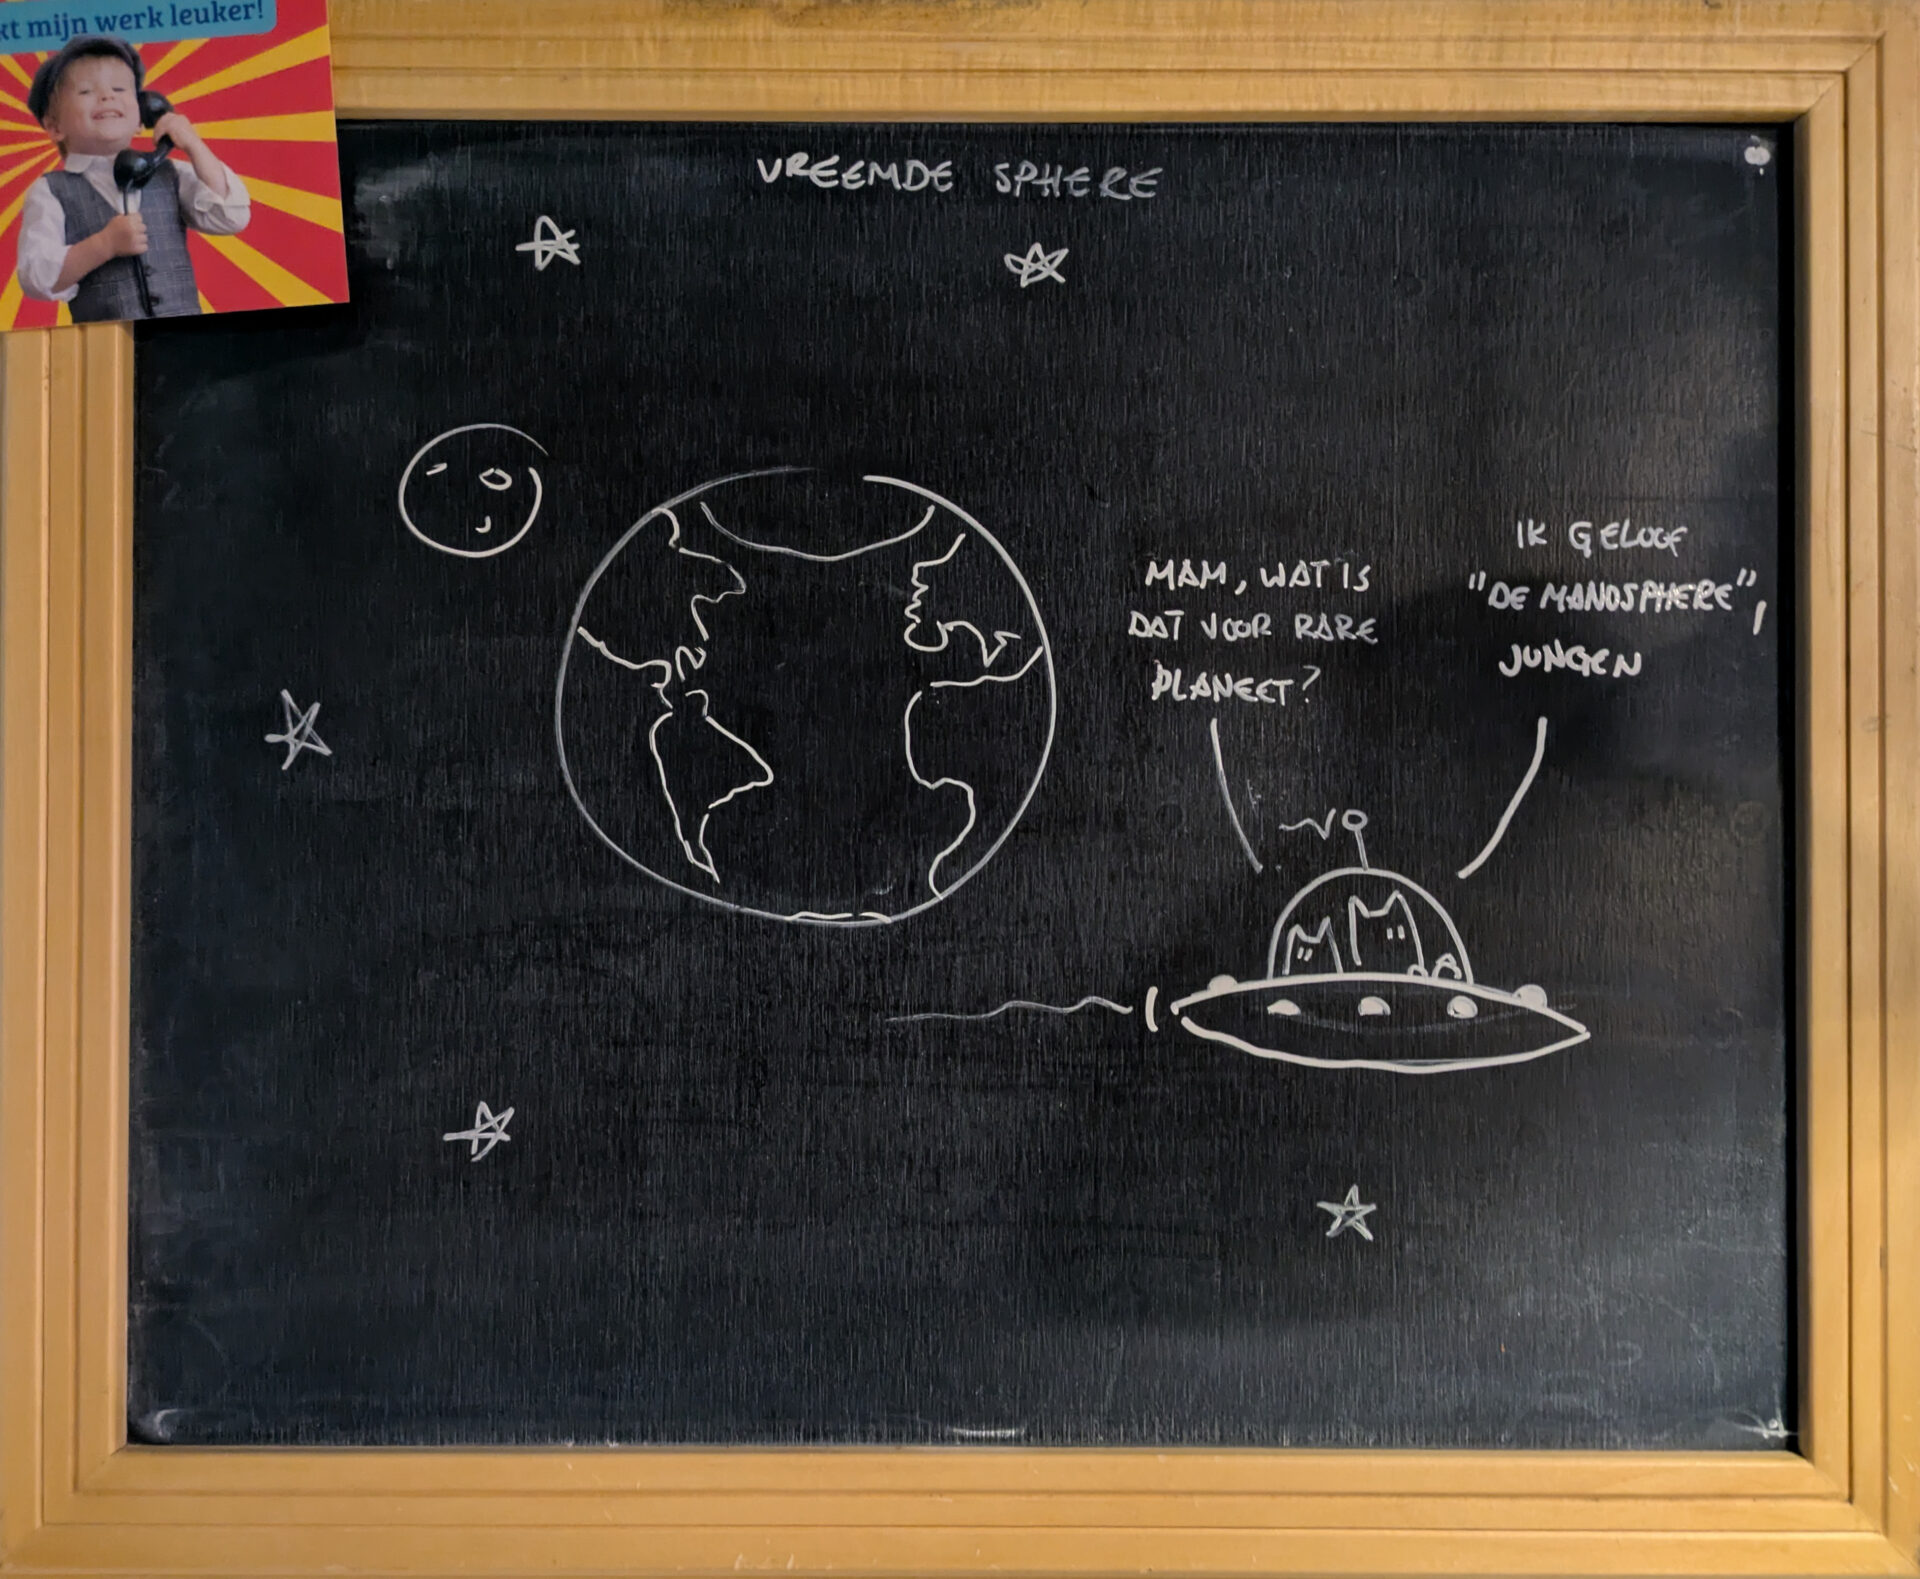 kt mijn werk leuker!
VREEMDE SPHERE
MAM, WAT IS
DAT VOOR RARE
PLANEET?
IK GELOOF
"DE MANOSPHERE",
JUNGEN